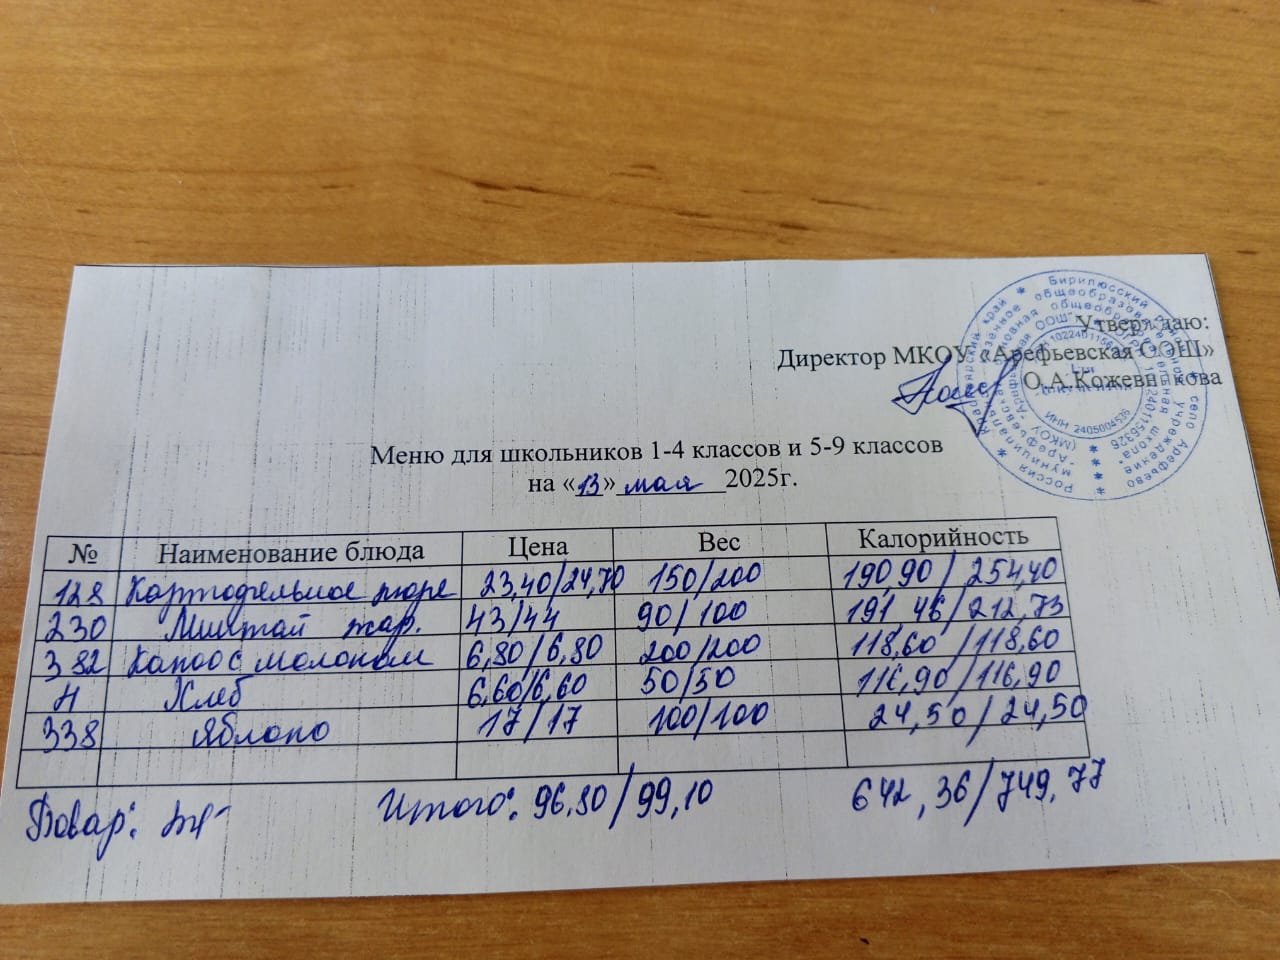 Утверждаю:
Директор МКОУ «Арефьевская ООШ»
О.А.Кожевникова
Меню для школьников 1-4 классов и 5-9 классов
на «13» мая 2025г.
№ Наименование блюда Цена Вес Калорийность
128 Картофельное пюре 23,40/24,70 150/200 190,90/254,40
230 Минтай жар. 43/44 90/100 191,46/212,73
382 Какао с молоком 6,80/6,80 200/200 118,60/118,60
Н Хлеб 6,60/6,60 50/50 116,90/116,90
338 Яблоко 17/17 100/100 24,50/24,50
Повар: Итого: 96,80/99,10 642,36/749,77
Россия Красноярский край Бирилюсский район село Арефьево
ИНН 2405004536